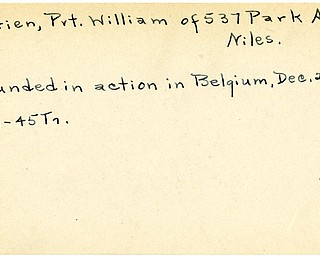 rien, Pvt. William of 537 Park A
Niles.
unded in action in Belgium, Dec. 2
-45 Tr.